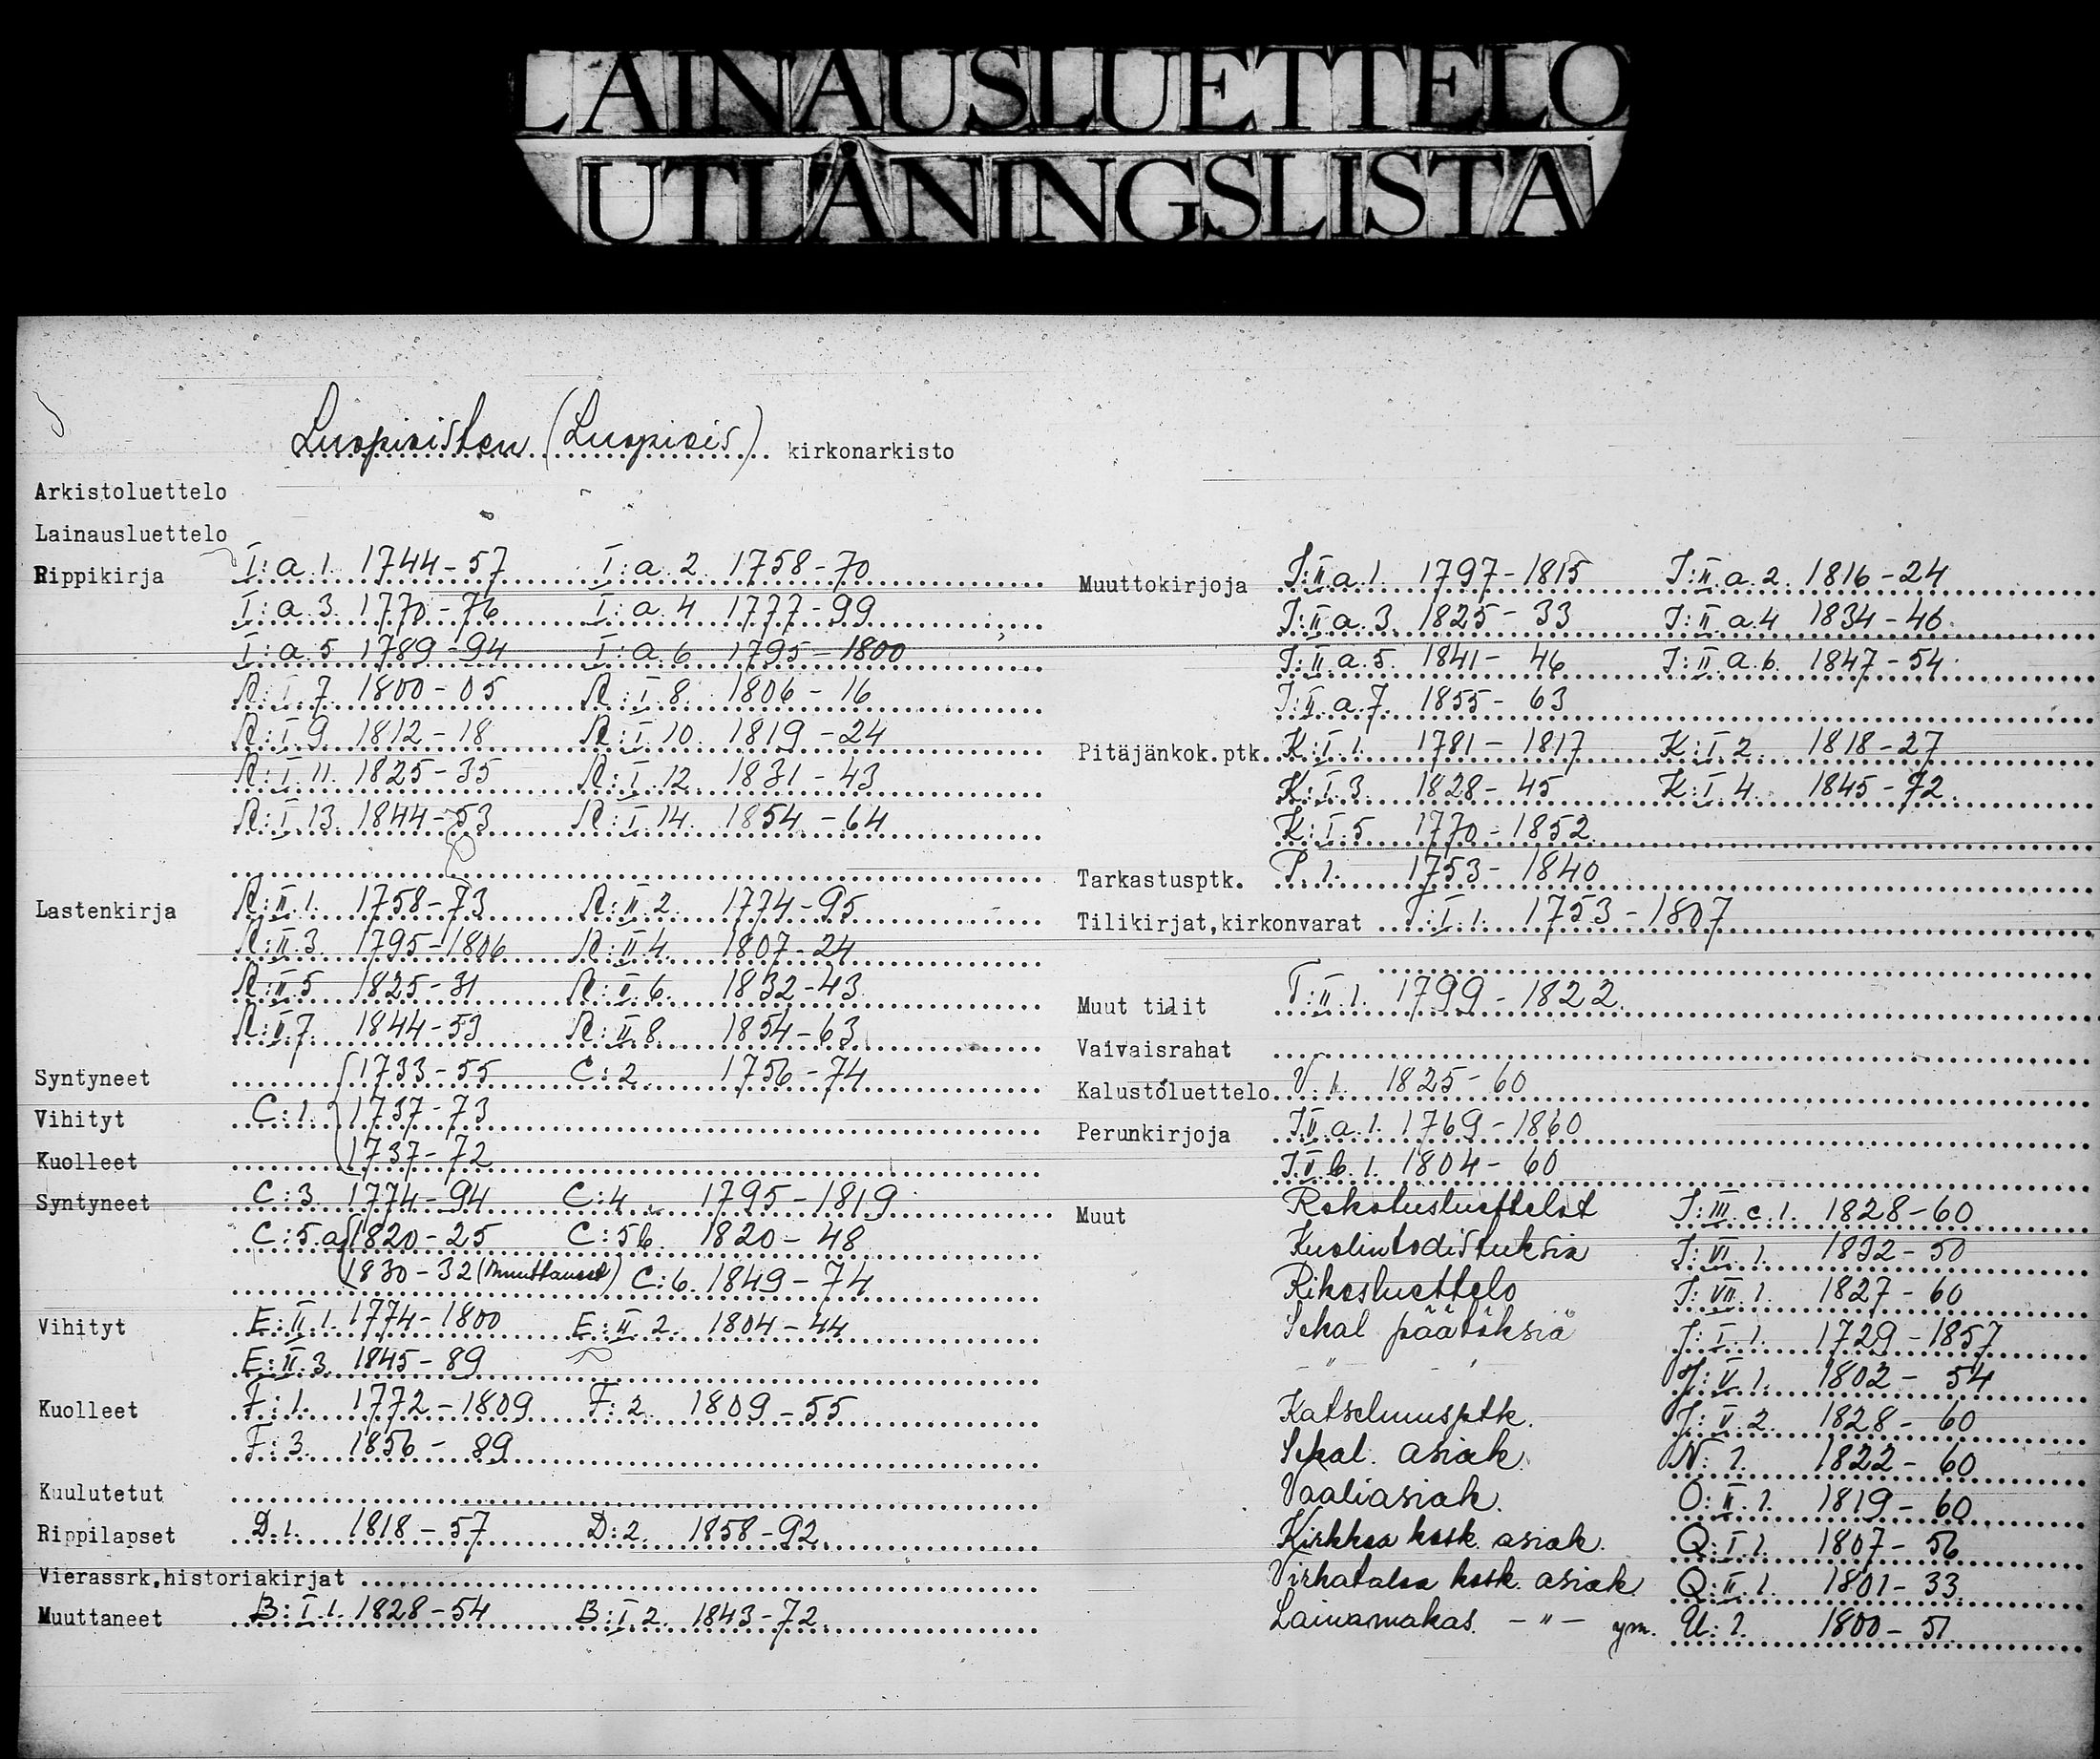 LAINAUSLUETTELO
UTLÅNINGSLISTA
Luopioisten (Luopiois) kirkonarkisto
Arkistoluettelo
Lainausluettelo
Rippikirja I:a.1. 1744-57 I:a.2. 1758-70
I:a.3. 1770-76 I:a.4 1777-99
I:a.5 1789-94 I:a.6 1795-1800
R:I.7. 1800-05 R:I.8. 1806-16
R:I.9 1812-18 R:I.10. 1819-24
R:I.11. 1825-35 R:I.12. 1831-43
R:I.13. 1844-53 R:I.14. 1854-64
Lastenkirja R:II.1. 1758-73 R:II.2. 1774-95
R:II.3. 1795-1806 R:II.4. 1807-24
R:II.5 1825-31 R:II.6. 1832-43
R:II.7. 1844-53 R:II.8. 1854-63
Syntyneet 1733-55 C:2. 1756-74
Vihityt C:1. 1737-73
Kuolleet 1737-72
Syntyneet C:3. 1774-94 C:4. 1795-1819
C:5.a 1820-25 C:5b. 1820-48
1830-32 (Muuttaneet) C:6. 1849-74
Vihityt E:II.1. 1774-1800 E:II.2. 1804-44
E:II.3. 1845-89
Kuolleet F:1. 1772-1809 F:2. 1809-55
F:3. 1856-89
Kuulutetut
Rippilapset D.1. 1818-57 D:2. 1858-92.
Vierassrk,historiakirjat
Muuttaneet B:I.1. 1828-54 B:I.2. 1843-72.
Muuttokirjoja J:II.a.1. 1797-1815 J:II.a.2. 1816-24
J:II.a.3. 1825-33 J:II.a.4 1834-46.
J:II.a.5. 1841-46 J:II.a.6. 1847-54.
J:II.a.7. 1855-63
Pitäjänkok.ptk. K:I.1. 1781-1817 K:I.2. 1818-27
K:I.3. 1828-45 K:I.4. 1845-72.
K:I.5 1770-1852.
Tarkastusptk. P.1. 1753-1840
Tilikirjat,kirkonvarat T:I.1. 1753-1807
Muut tilit T:II.1. 1799-1822.
Vaivaisrahat
Kalustoluettelo V.1. 1825-60
Perunkirjoja J.II.a.1. 1769-1860
J.V.b.1. 1804-60
Muut Rokotusluettelot J:III.c.1. 1828-60
Kuolintodistuksia J:VI.1. 1832-50
Rikosluettelo J:VII.1. 1827-60
Sekal päätöksiä J:I.1. 1729-1857
-"- -"- J:V.1. 1802-54
Katselmusptk. J:V.2. 1828-60
Sekal. asiak. N:1. 1822-60
Vaaliasiak. O:II.1. 1819-60
Kirkkoa kosk. asiak. Q:I.1. 1807-56
Virkataloa kosk. asiak. Q:II.1. 1801-33.
Lainamakas. -"- ym. U:1. 1800-51.